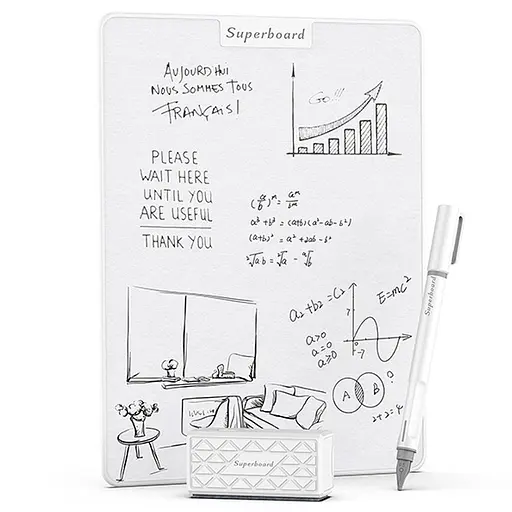 Superboard
AUJOURD'HUI
NOUS SOMMES TOUS
FRANÇAIS!
Go!!!
PLEASE
WAIT HERE
UNTIL YOU
ARE USEFUL
THANK YOU
(a/b)^m = a^m/b^m
a³+b³ = (a+b)(a²-ab-b²)
(a+b)² = a²+2ab-b²
a₂+b₂=C₂
E=mc²
a>0
a=0
A
B
?
2+2=4
Superboard
Superboard